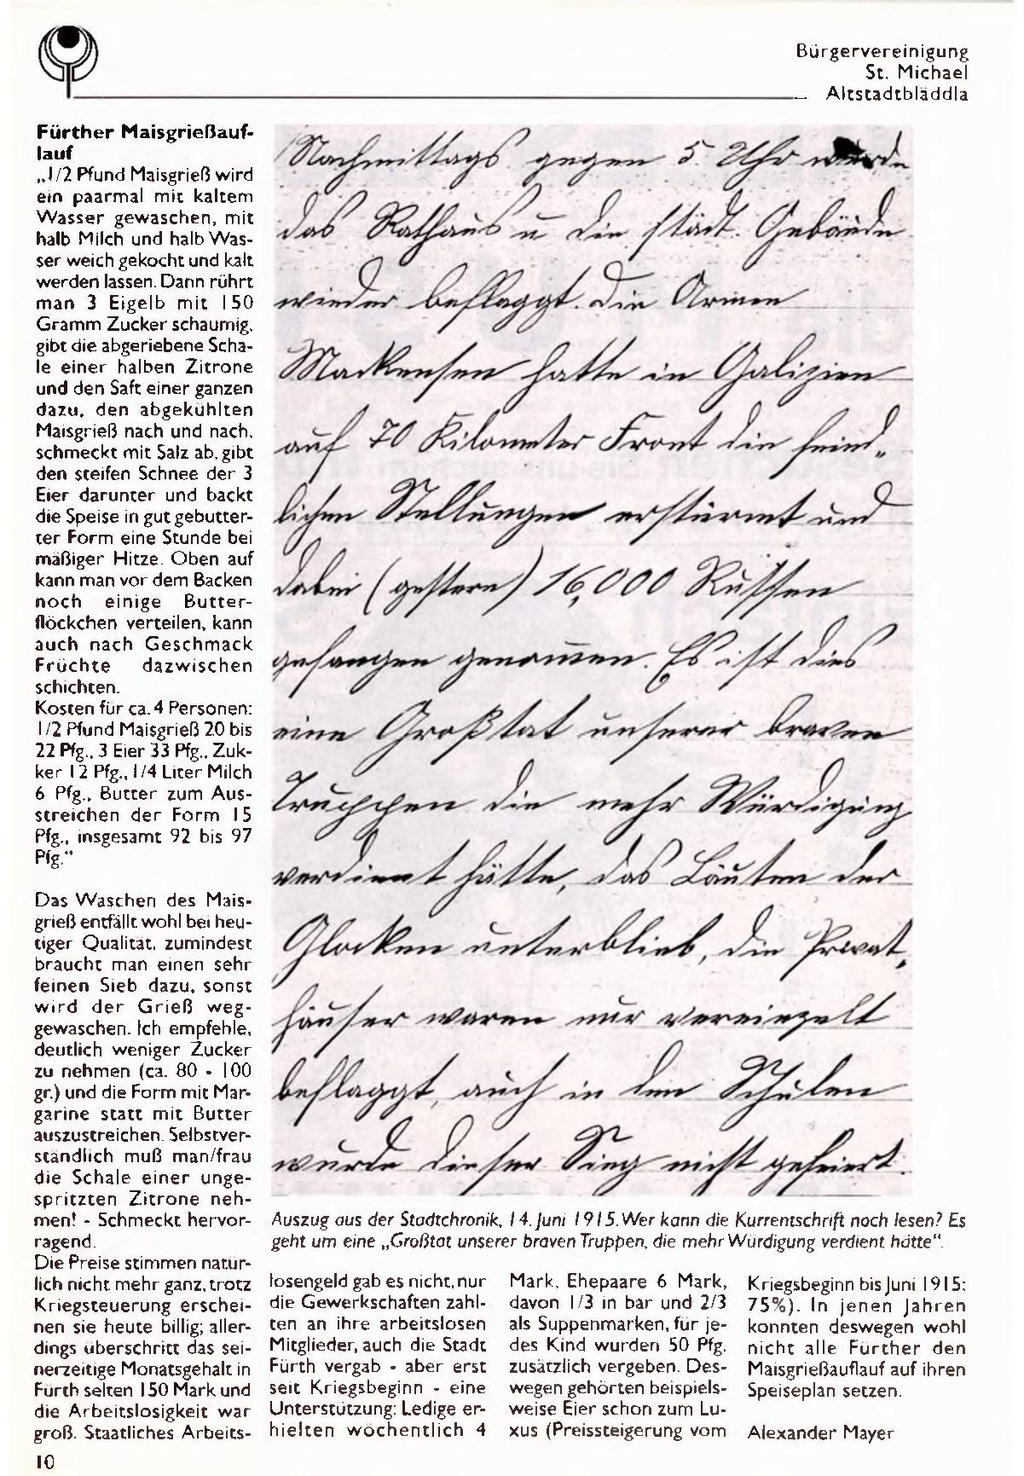 Bürgervereinigung
St. Michael
Altstadtbläddla
Fürther Maisgrießauf-
lauf
„1/2 Pfund Maisgrieß wird
ein paarmal mit kaltem
Wasser gewaschen, mit
halb Milch und halb Was-
ser weich gekocht und kalt
werden lassen. Dann rührt
man 3 Eigelb mit 150
Gramm Zucker schaumig,
gibt die abgeriebene Scha-
le einer halben Zitrone
und den Saft einer ganzen
dazu, den abgekühlten
Maisgrieß nach und nach,
schmeckt mit Salz ab, gibt
den steifen Schnee der 3
Eier darunter und backt
die Speise in gut gebutter-
ter Form eine Stunde bei
mäßiger Hitze. Oben auf
kann man vor dem Backen
noch einige Butter-
flöckchen verteilen, kann
auch nach Geschmack
Früchte dazwischen
schichten.
Kosten für ca. 4 Personen:
1/2 Pfund Maisgrieß 20 bis
22 Pfg., 3 Eier 33 Pfg., Zuk-
ker 12 Pfg., 1/4 Liter Milch
6 Pfg., Butter zum Aus-
streichen der Form 15
Pfg., insgesamt 92 bis 97
Pfg."
Das Waschen des Mais-
grieß entfällt wohl bei heu-
tiger Qualität, zumindest
braucht man einen sehr
feinen Sieb dazu, sonst
wird der Grieß weg-
gewaschen. Ich empfehle,
deutlich weniger Zucker
zu nehmen (ca. 80 - 100
gr.) und die Form mit Mar-
garine statt mit Butter
auszustreichen. Selbstver-
ständlich muß man/frau
die Schale einer unge-
spritzten Zitrone neh-
men! - Schmeckt hervor-
ragend.
Die Preise stimmen natür-
lich nicht mehr ganz, trotz
Kriegsteuerung erschei-
nen sie heute billig; aller-
dings überschritt das sei-
nerzeitige Monatsgehalt in
Fürth selten 150 Mark und
die Arbeitslosigkeit war
groß. Staatliches Arbeits-
Nachmittags gegen 5 Uhr wurde
das Rathaus u die städt. Gebäude
wieder beflaggt. Die Armee
Mackensen hatte in Galizien
auf 70 Kilometer Front die feind-
lichen Stellungen erstürmt und
dabei (gestern) 16,000 Russen
gefangen genommen. Es ist dies
eine Großtat unserer braven
Truppen die mehr Würdigung
verdient hätte, das Läuten der
Glocken unterblieb, die Privat-
häuser waren nur vereinzelt
beflaggt, auch in den Schulen
wurde dieser Sieg nicht gefeiert.
Auszug aus der Stadtchronik, 14. Juni 1915. Wer kann die Kurrentschrift noch lesen? Es
geht um eine „Großtat unserer braven Truppen, die mehr Würdigung verdient hätte".
losengeld gab es nicht, nur
die Gewerkschaften zahl-
ten an ihre arbeitslosen
Mitglieder, auch die Stadt
Fürth vergab - aber erst
seit Kriegsbeginn - eine
Unterstützung: Ledige er-
hielten wöchentlich 4
Mark, Ehepaare 6 Mark,
davon 1/3 in bar und 2/3
als Suppenmarken, für je-
des Kind wurden 50 Pfg.
zusätzlich vergeben. Des-
wegen gehörten beispiels-
weise Eier schon zum Lu-
xus (Preissteigerung vom
Kriegsbeginn bis Juni 1915:
75%). In jenen Jahren
konnten deswegen wohl
nicht alle Fürther den
Maisgrießauflauf auf ihren
Speiseplan setzen.
Alexander Mayer
10